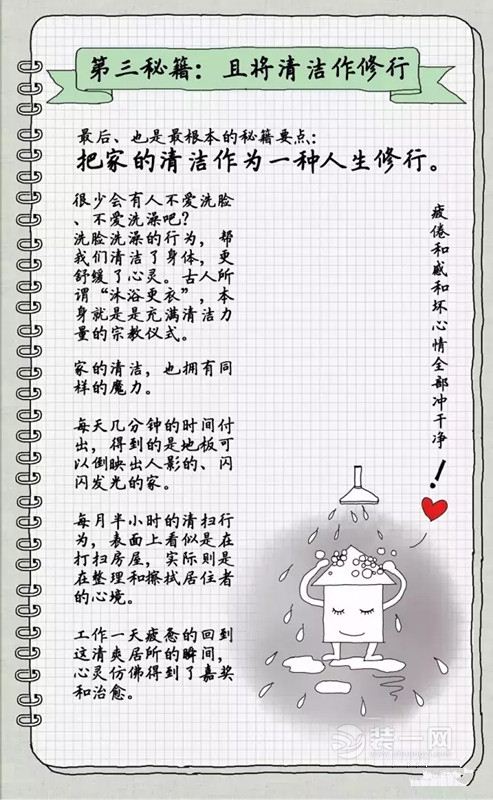 第三秘籍：且将清洁作修行
最后、也是最根本的秘籍要点：
把家的清洁作为一种人生修行。
很少会有人不爱洗脸
、不爱洗澡吧？
洗脸洗澡的行为，帮
我们清洁了身体，更
舒缓了心灵。古人所
谓“沐浴更衣”，本
身就是是充满清洁力
量的宗教仪式。
家的清洁，也拥有同
样的魔力。
每天几分钟的时间付
出，得到的是地板可
以倒映出人影的、闪
闪发光的家。
每月半小时的清扫行
为，表面上看似是在
打扫房屋，实际则是
在整理和擦拭居住者
的心境。
工作一天疲惫的回到
这清爽居所的瞬间，
心灵仿佛得到了嘉奖
和治愈。
疲倦和感和坏心情全部冲干净！
装一网